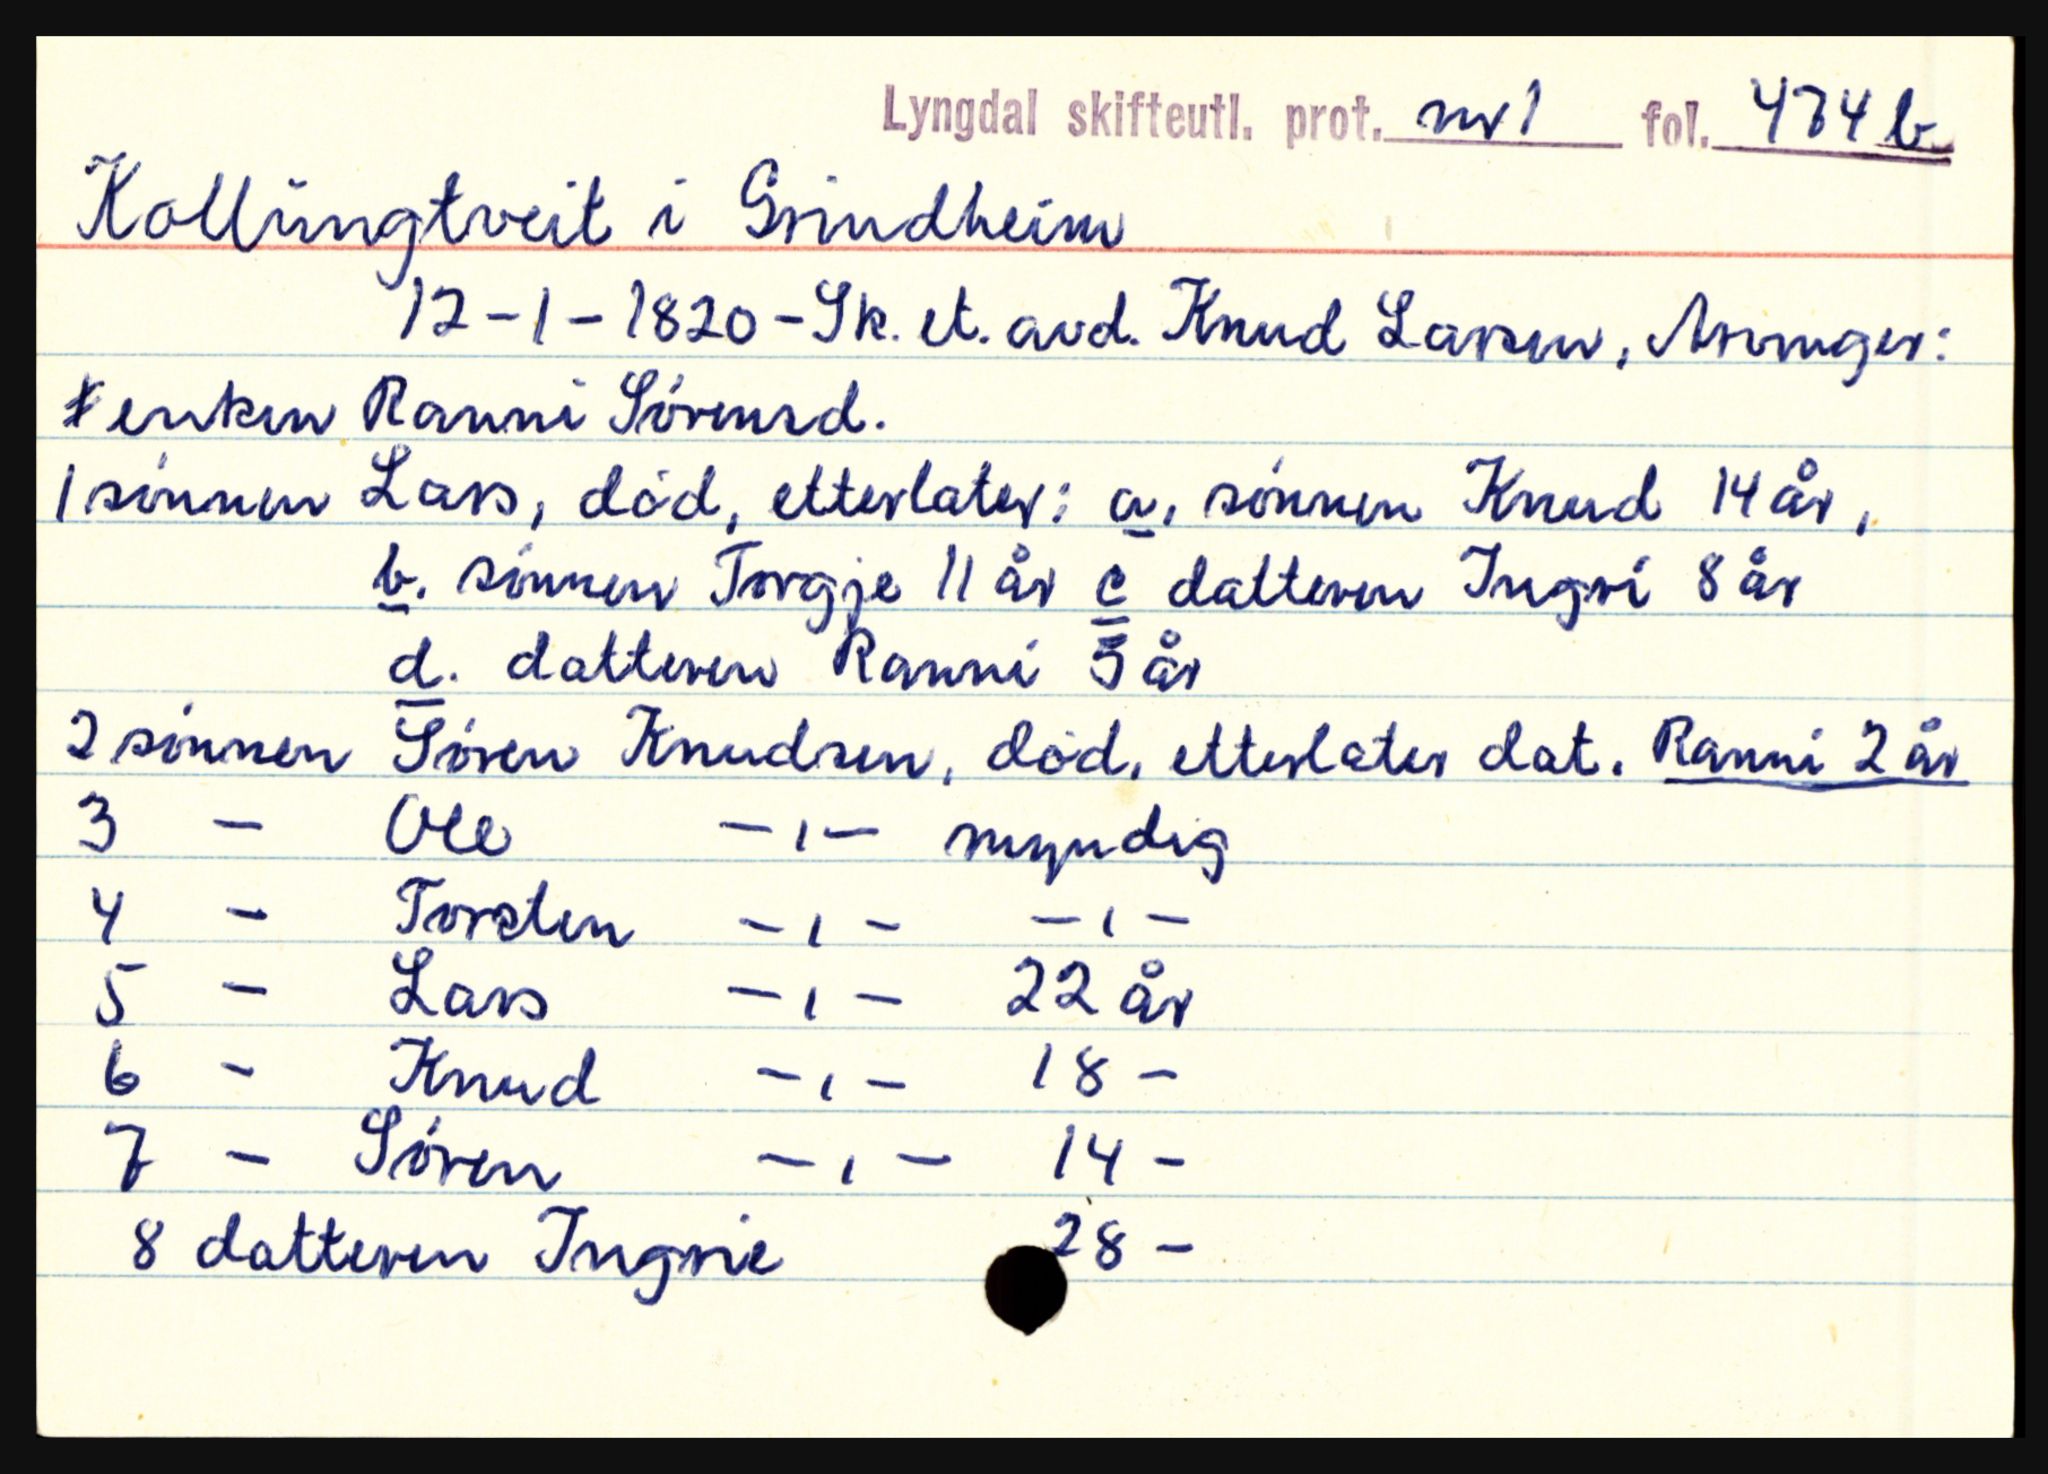 Lyngdal skifteutl. prot. nr 1 fol. 474 b
Kollungtveit i Grindheim
12-1-1820 - Sk. et. avd. Knud Larsen, Arvinger:
enken Ranni Sørensd.
1 sønnen Lars, død, etterlater: a, sønnen Knud 14 år,
b. sønnen Torgje 11 år c datteren Ingri 8 år
d. datteren Ranni 5 år
2 sønnen Søren Knudsen, død, etterlater dat. Ranni 2 år
3 - Ole -ı- myndig
4 - Torsten -ı- -ı-
5 - Lars -ı- 22 år
6 - Knud -ı- 18 -
7 - Søren -ı- 14 -
8 datteren Ingrie 28 -